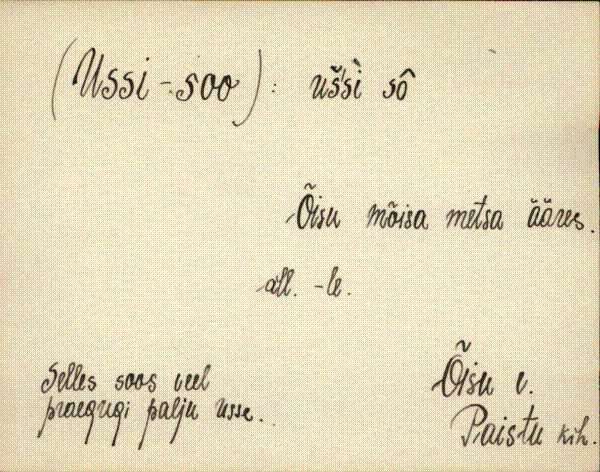 (Ussi-soo): uššì sô
Õisu mõisa metsa ääres.
all. -le.
Selles soos veel
praegugi palju usse.
Õisu v.
Paistu kih.